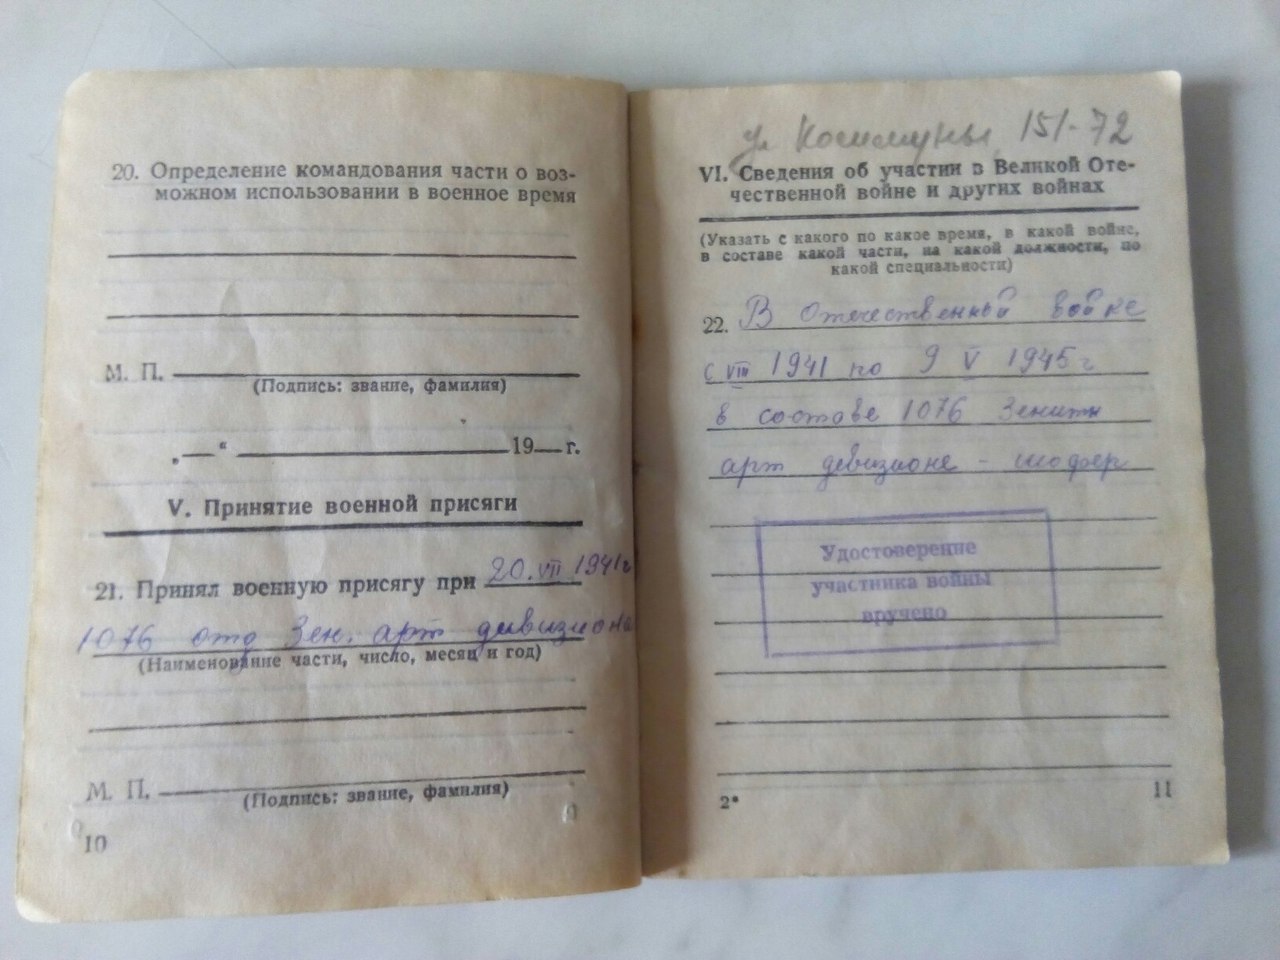 20. Определение командования части о воз-
можном использовании в военное время
М. П.
(Подпись: звание, фамилия)
„—“ 19— г.
V. Принятие военной присяги
21. Принял военную присягу при 20.VII 1941г
1076 отд Зен. арт дивизиона
(Наименование части, число, месяц и год)
М. П.
(Подпись: звание, фамилия)
10
ул Коммуны 151-72
VI. Сведения об участии в Великой Оте-
чественной войне и других войнах
(Указать с какого по какое время, в какой войне,
в составе какой части, на какой должности, по
какой специальности)
22. В Отечественной войне
с VIII 1941 по 9 V 1945г
в составе 1076 Зенитн
арт дивизионе - шофер
Удостоверение
участника войны
вручено
2*
11